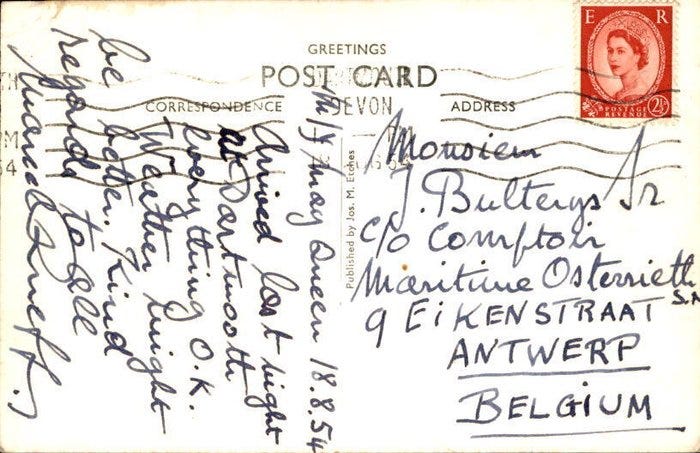 GREETINGS
POST CARD
CORRESPONDENCE
ADDRESS
DEVON
E R
POSTAGE
REVENUE
2½
Published by Jos. M. Etches
M/Y May Queen 18.8.54
Arrived last night
at Dartmouth
everything O.K.
Weather might
be better. Kind
regards to all
Monsieur
J. Bulterys Jr
c/o Comptoir
Maritime Osterrieth
S.A.
9 EiKENSTRAAT
ANTWERP
BELGIUM